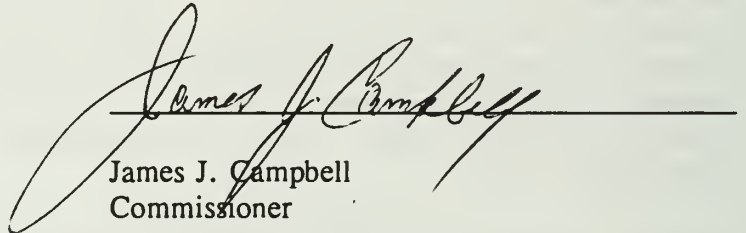 James J. Campbell
James J. Campbell
Commissioner